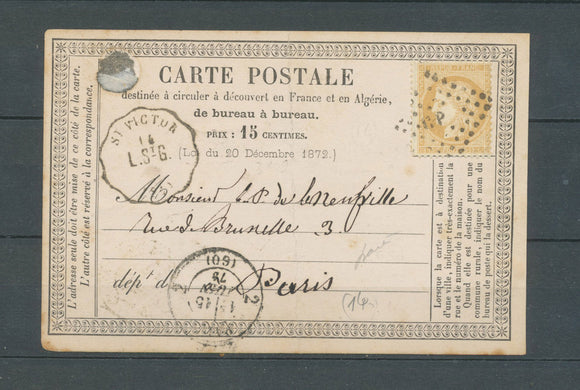 CARTE POSTALE
destinée à circuler à découvert en France et en Algérie,
de bureau à bureau.
PRIX : 15 CENTIMES.
(Loi du 20 Décembre 1872.)
ST VICTOR
14
L.ST G.
Monsieur
rue de Bruxelle 3
place
dépt d
Paris
(60)
2
L'adresse seule doit être mise de ce côté de la carte.
L'autre côté est réservé à la correspondance.
Lorsque la carte est à destination
d'une ville, indiquer très-exactement la
rue et le numéro de la maison.
Quand elle est destinée pour une
commune rurale, indiquer le nom du
bureau de poste qui la dessert.